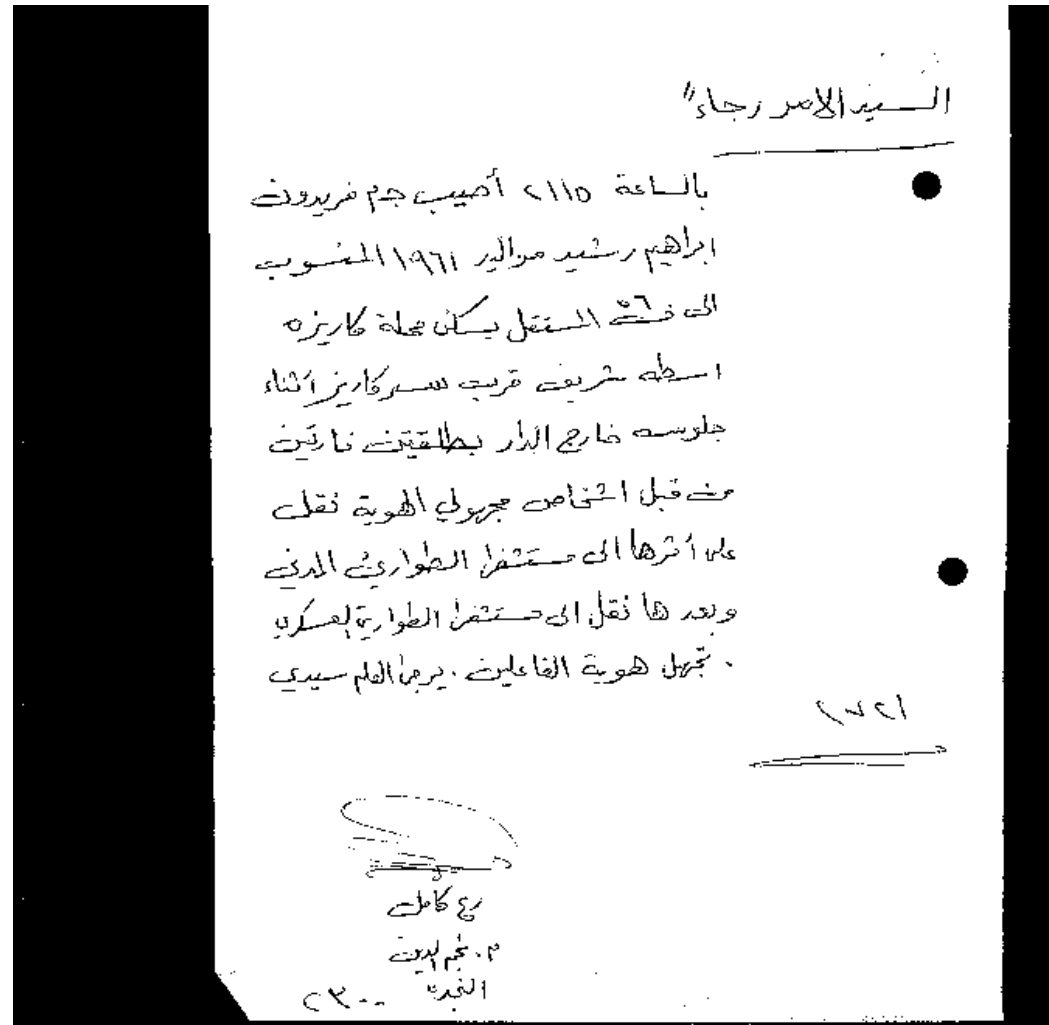 السيد الامر رجاء"
بالساعة ٢١١٥ أصيب ج م فريدون
ابراهيم رشيد مواليد ١٩٦١ المنسوب
الى ٥٦ المستقل يسكن محلة كاريزه
اسطه شريف قرب سر كاريز اثناء
جلوسه خارج الدار بطلقتين ناريتين
من قبل اشخاص مجهولي الهوية نقل
على أثرها الى مستشفى الطوارئ المدني
وبعدها نقل الى مستشفى الطوارئ العسكري
. تجهل هوية الفاعلين . يرجى العلم سيدي
كامل
م. نجم الدين
النجدة ٢٣٠٠